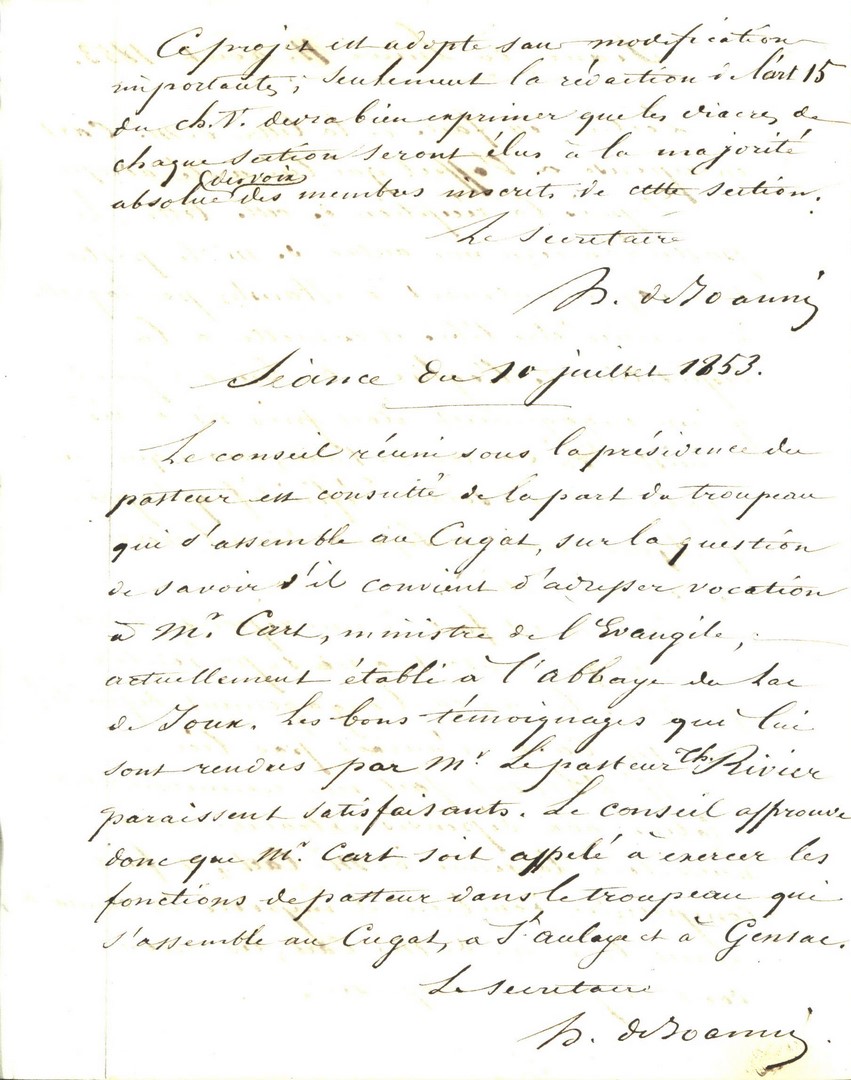 Ce projet est adopté sans modification
importante; seulement la rédaction de l'art 15
du ch. V. devra bien exprimer que les diacres de
chaque section seront élus à la majorité
des voix
absolue des membres inscrits de cette section.
Le secrétaire
h. de Joannis
Séance du 10 juillet 1853.
Le conseil réuni sous la présidence du
pasteur est consulté de la part du troupeau
qui s'assemble au Cugat, sur la question
de savoir s'il convient d'adresser vocation
à Mr. Cart, ministre de l'Evangile,
actuellement établi à l'abbaye du Lac
de Joux. Les bons témoignages qui lui
sont rendus par Mr. Le pasteur Th. Rivier
paraissent satisfaisants. Le conseil approuve
donc que Mr. Cart soit appelé à exercer les
fonctions de pasteur dans le troupeau qui
s'assemble au Cugat, a St aulaye et à Gensac.
Le secretaire
h. de Joannis.